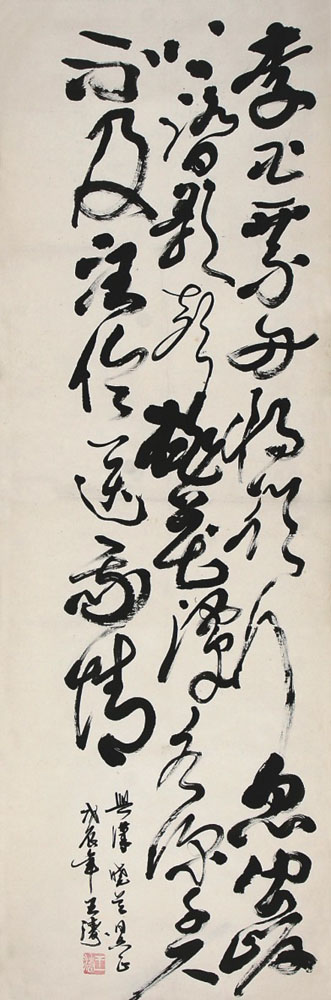 李白乘舟將欲行忽聞岸
上踏歌聲桃花潭水深千尺
不及汪倫送我情
正
戊辰年王